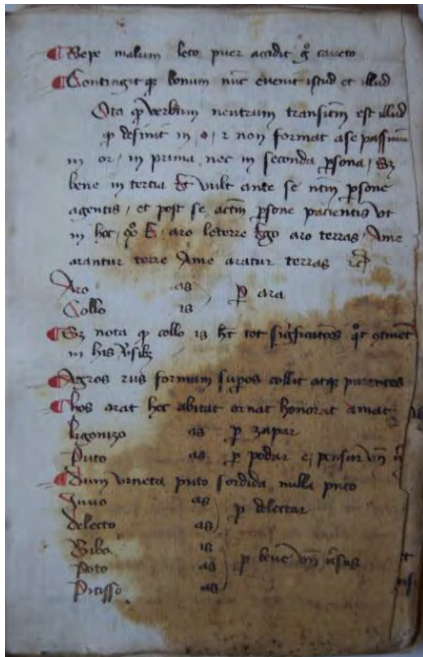 Sepe malum leto puer accidit g̃ caveto
Contingit q̃ bonum nũc evenit istud et illud
Nota q̃ verbum neutrum transitiũ est illud
q̃ desinit in o, r non format a se passiuũ
in or, in prima, nec in secunda p̃sona, Sz
bene in tertia Et vult ante se ntm̃ p̃sone
agentis, et post se actm̃ p̃sone pacientis vt
in hoc, aro le terre Ego aro terras, A me
arantur terre A me aratur terras rc̃
Aro as
Collo is p̱ ara
Sz nota q̃ collo is ht̃ tot significatões
in his v̓sibz
Agros rus formam supos collit atqz parentes
hos arat hoc abitat ornat honorat amat
ligonizo as p̱ zapar
Puto as p̱ podar e pensar vñ
Dum vineta puto sordida nulla puto
Iuuo as
delecto as p̱ delectar
Bibo is
Poto as p̱ beuẽ vñ v̓sus
Pitisso as